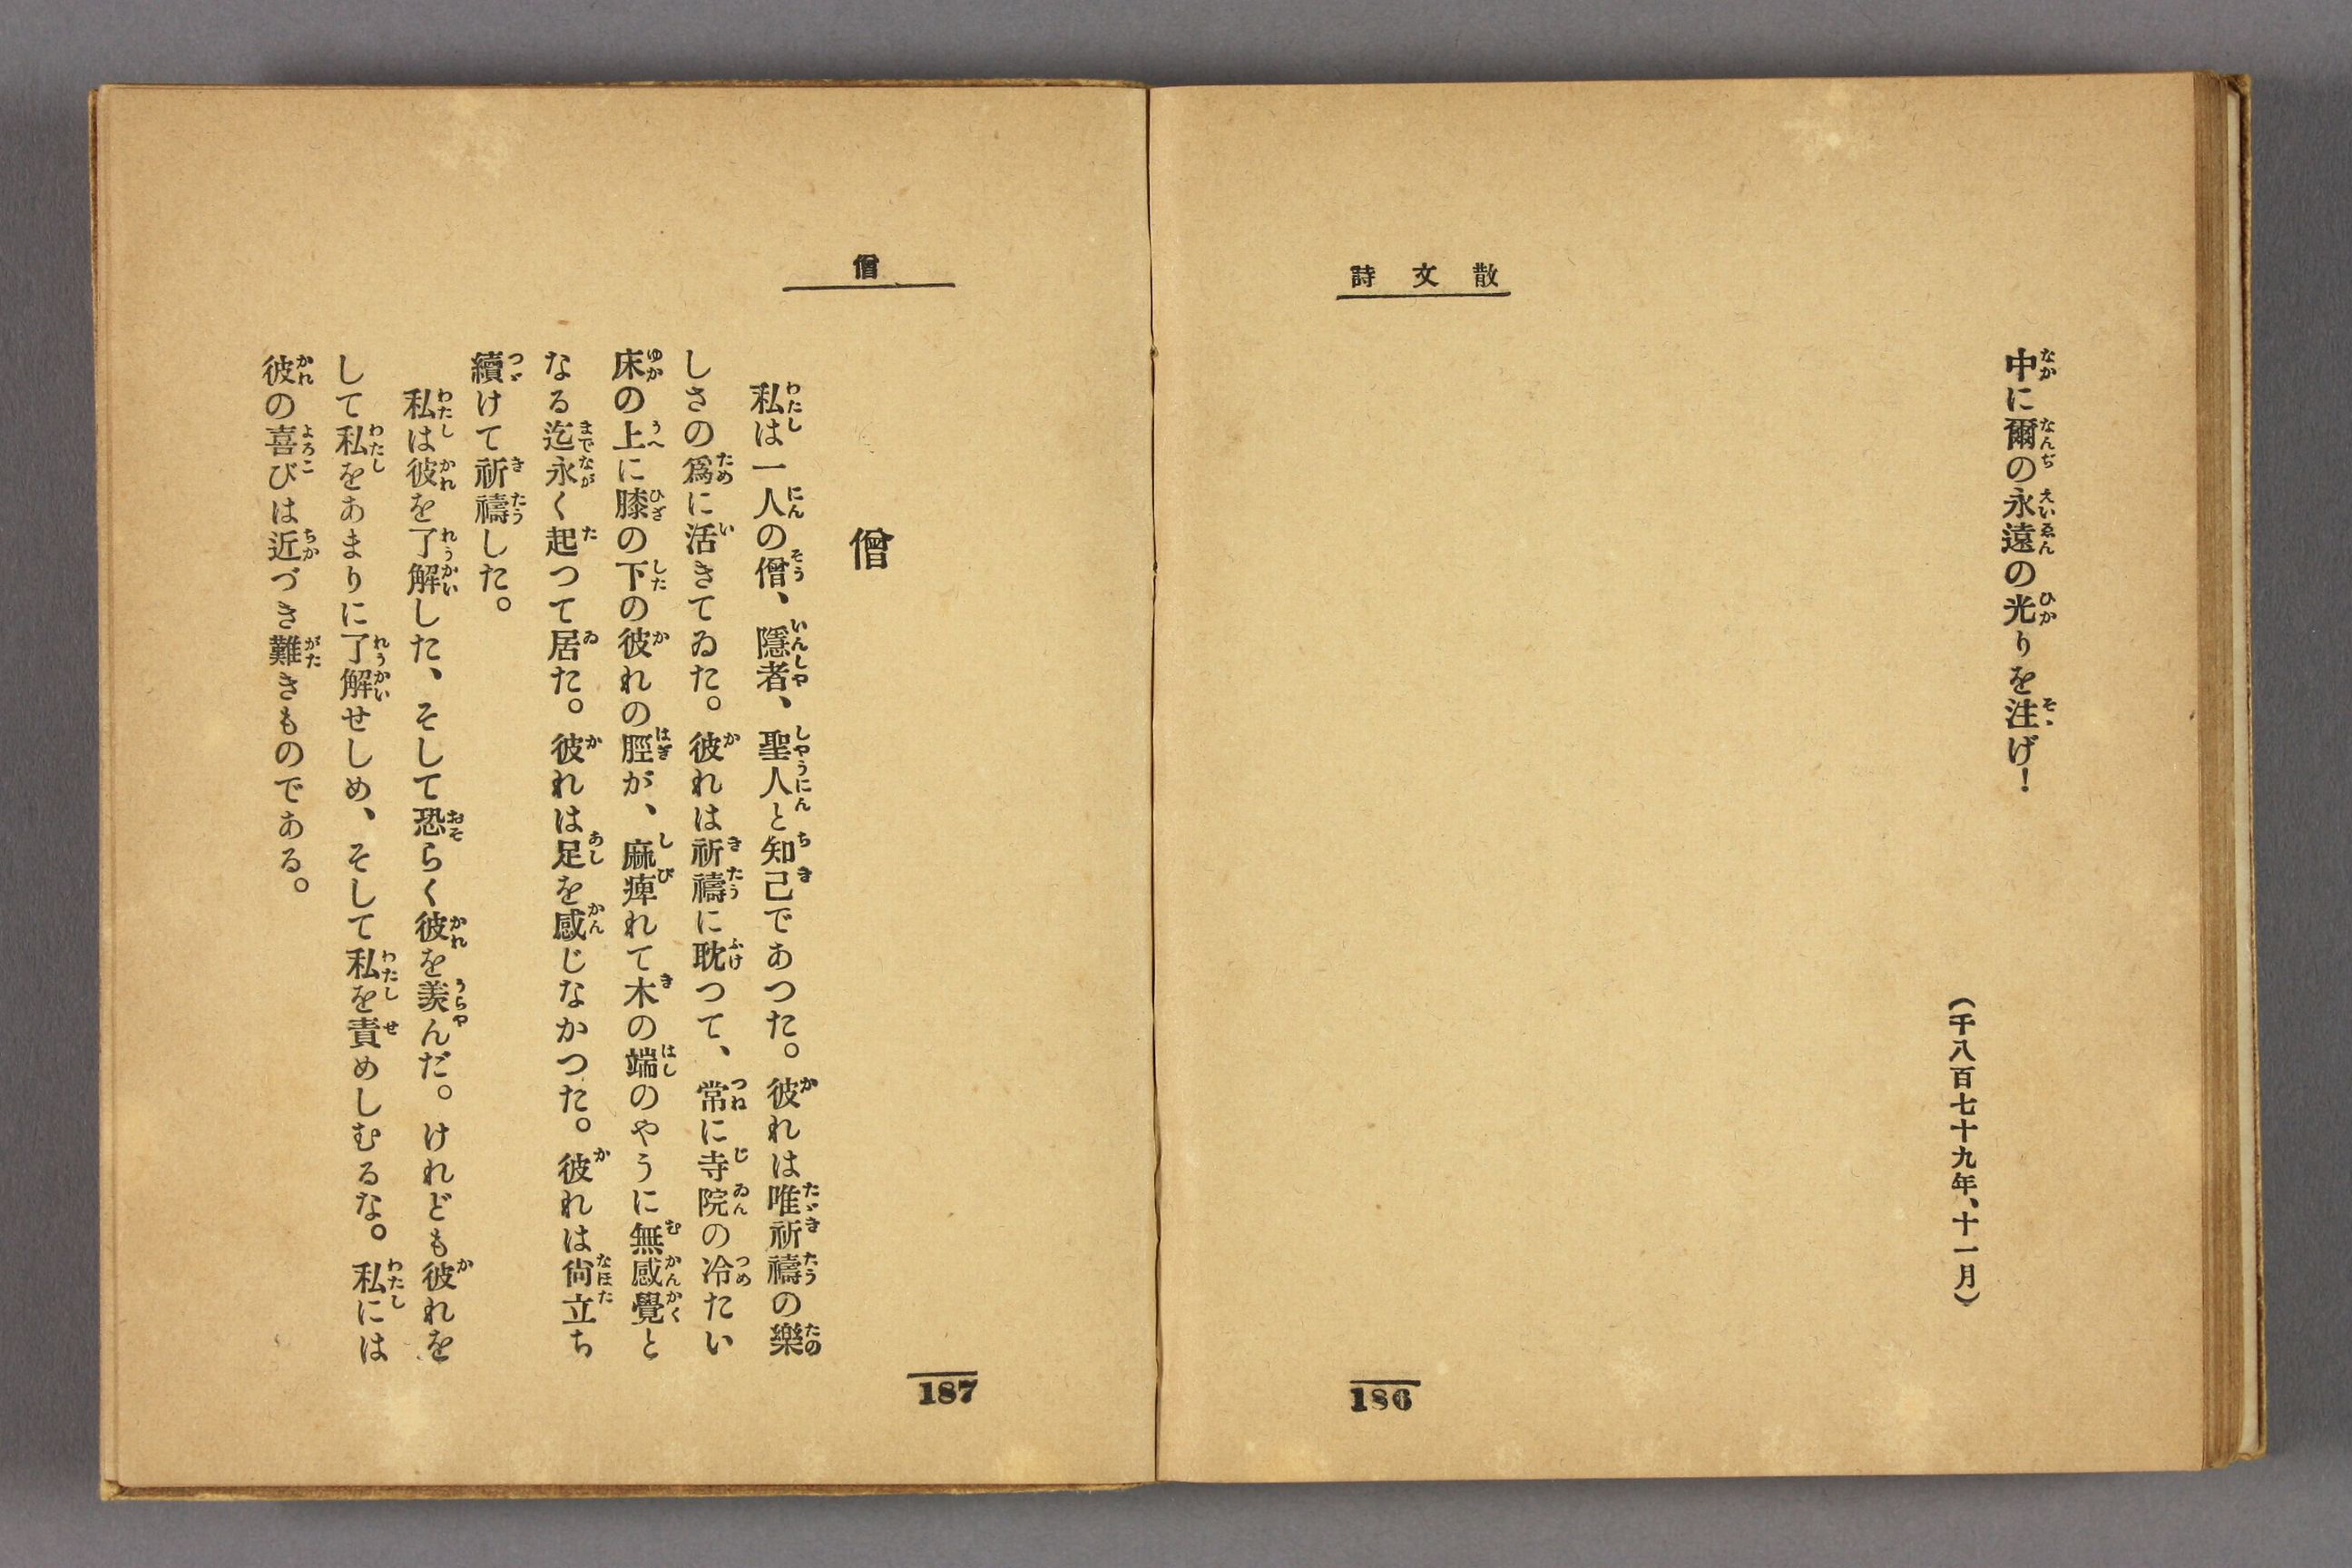 散文詩
中に爾の永遠の光りを注げ！
（千八百七十九年、十一月）
186
僧
僧
私は一人の僧、隱者、聖人と知己であつた。彼れは唯祈禱の樂
しさの爲に活きてゐた。彼れは祈禱に耽つて、常に寺院の冷たい
床の上に膝の下の彼れの脛が、麻痺れて木の端のやうに無感覺と
なる迄永く起つて居た。彼れは足を感じなかつた。彼れは尙立ち
續けて祈禱した。
私は彼を了解した、そして恐らく彼を羨んだ。けれども彼れを
して私をあまりに了解せしめ、そして私を責めしむるな。私には
彼の喜びは近づき難きものである。
187